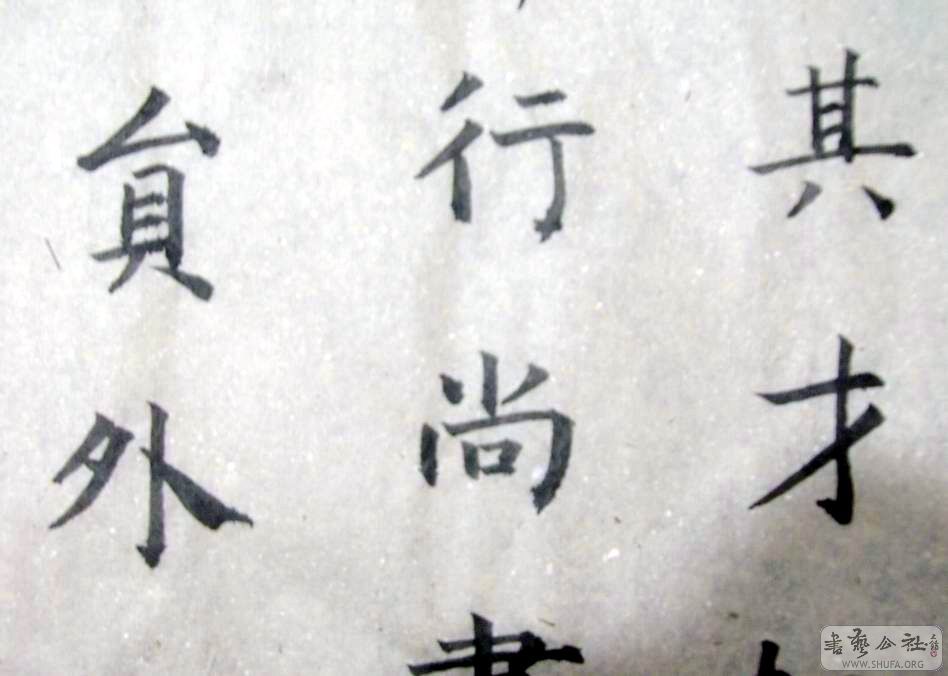 其才
行尚書
貟外
書藝公社
WWW.SHUFA.ORG